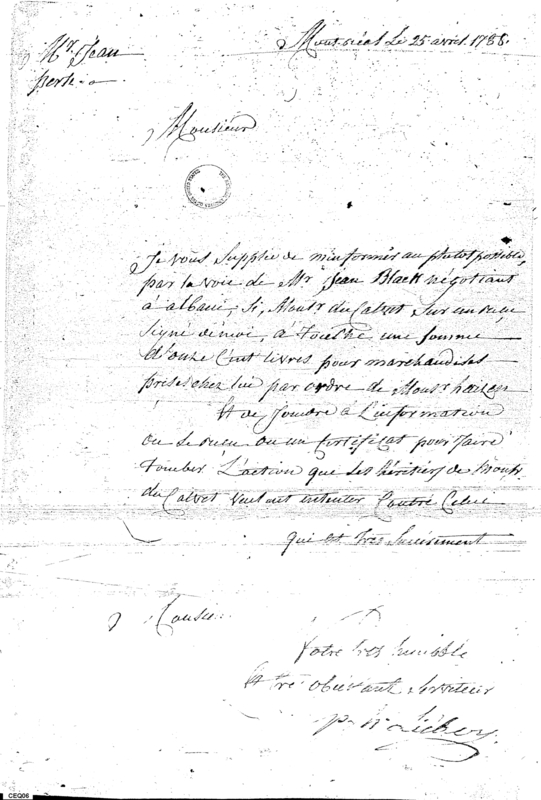 Montréal Le 25 avril 1788.
Mr. Jean
Monsieur
Je vous Supplie de m'informér au plutot possible,
par la voie de Mr. Jean Black négotiant
à albani, Si, Monsr. du Calvet Sur un reçu
Signé de moi, a Touché une Somme
d'onze Cent livres pour marchandises
prises chez lui par ordre de Monsr. hazen
Et de Joindre à L'information
ou Le recu ou un Certificat pour faire
tomber L'action que Les héritiers de Monsr.
du Calvet veulent intenter Contre Celui
qui est tres Sincérement
Monsieur
Votre tres humble
Et tre obéissant Serviteur
CEQ06